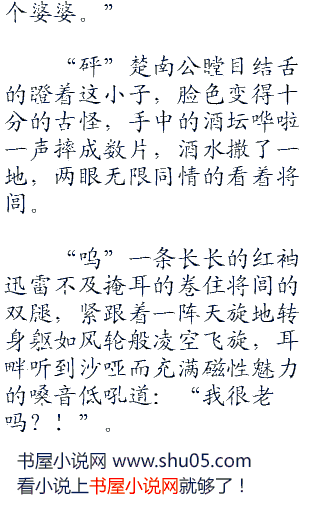 个婆婆。”
“砰”楚南公瞠目结舌
的瞪着这小子，脸色变得十
分的古怪，手中的酒坛哗啦
一声摔成数片，酒水撒了一
地，两眼无限同情的看着将
闾。
“呜”一条长长的红袖
迅雷不及掩耳的卷住将闾的
双腿，紧跟着一阵天旋地转
身躯如风轮般凌空飞旋，耳
畔听到沙哑而充满磁性魅力
的嗓音低吼道：“我很老
吗？！”。
书屋小说网 www.shu05.com
看小说上书屋小说网就够了！